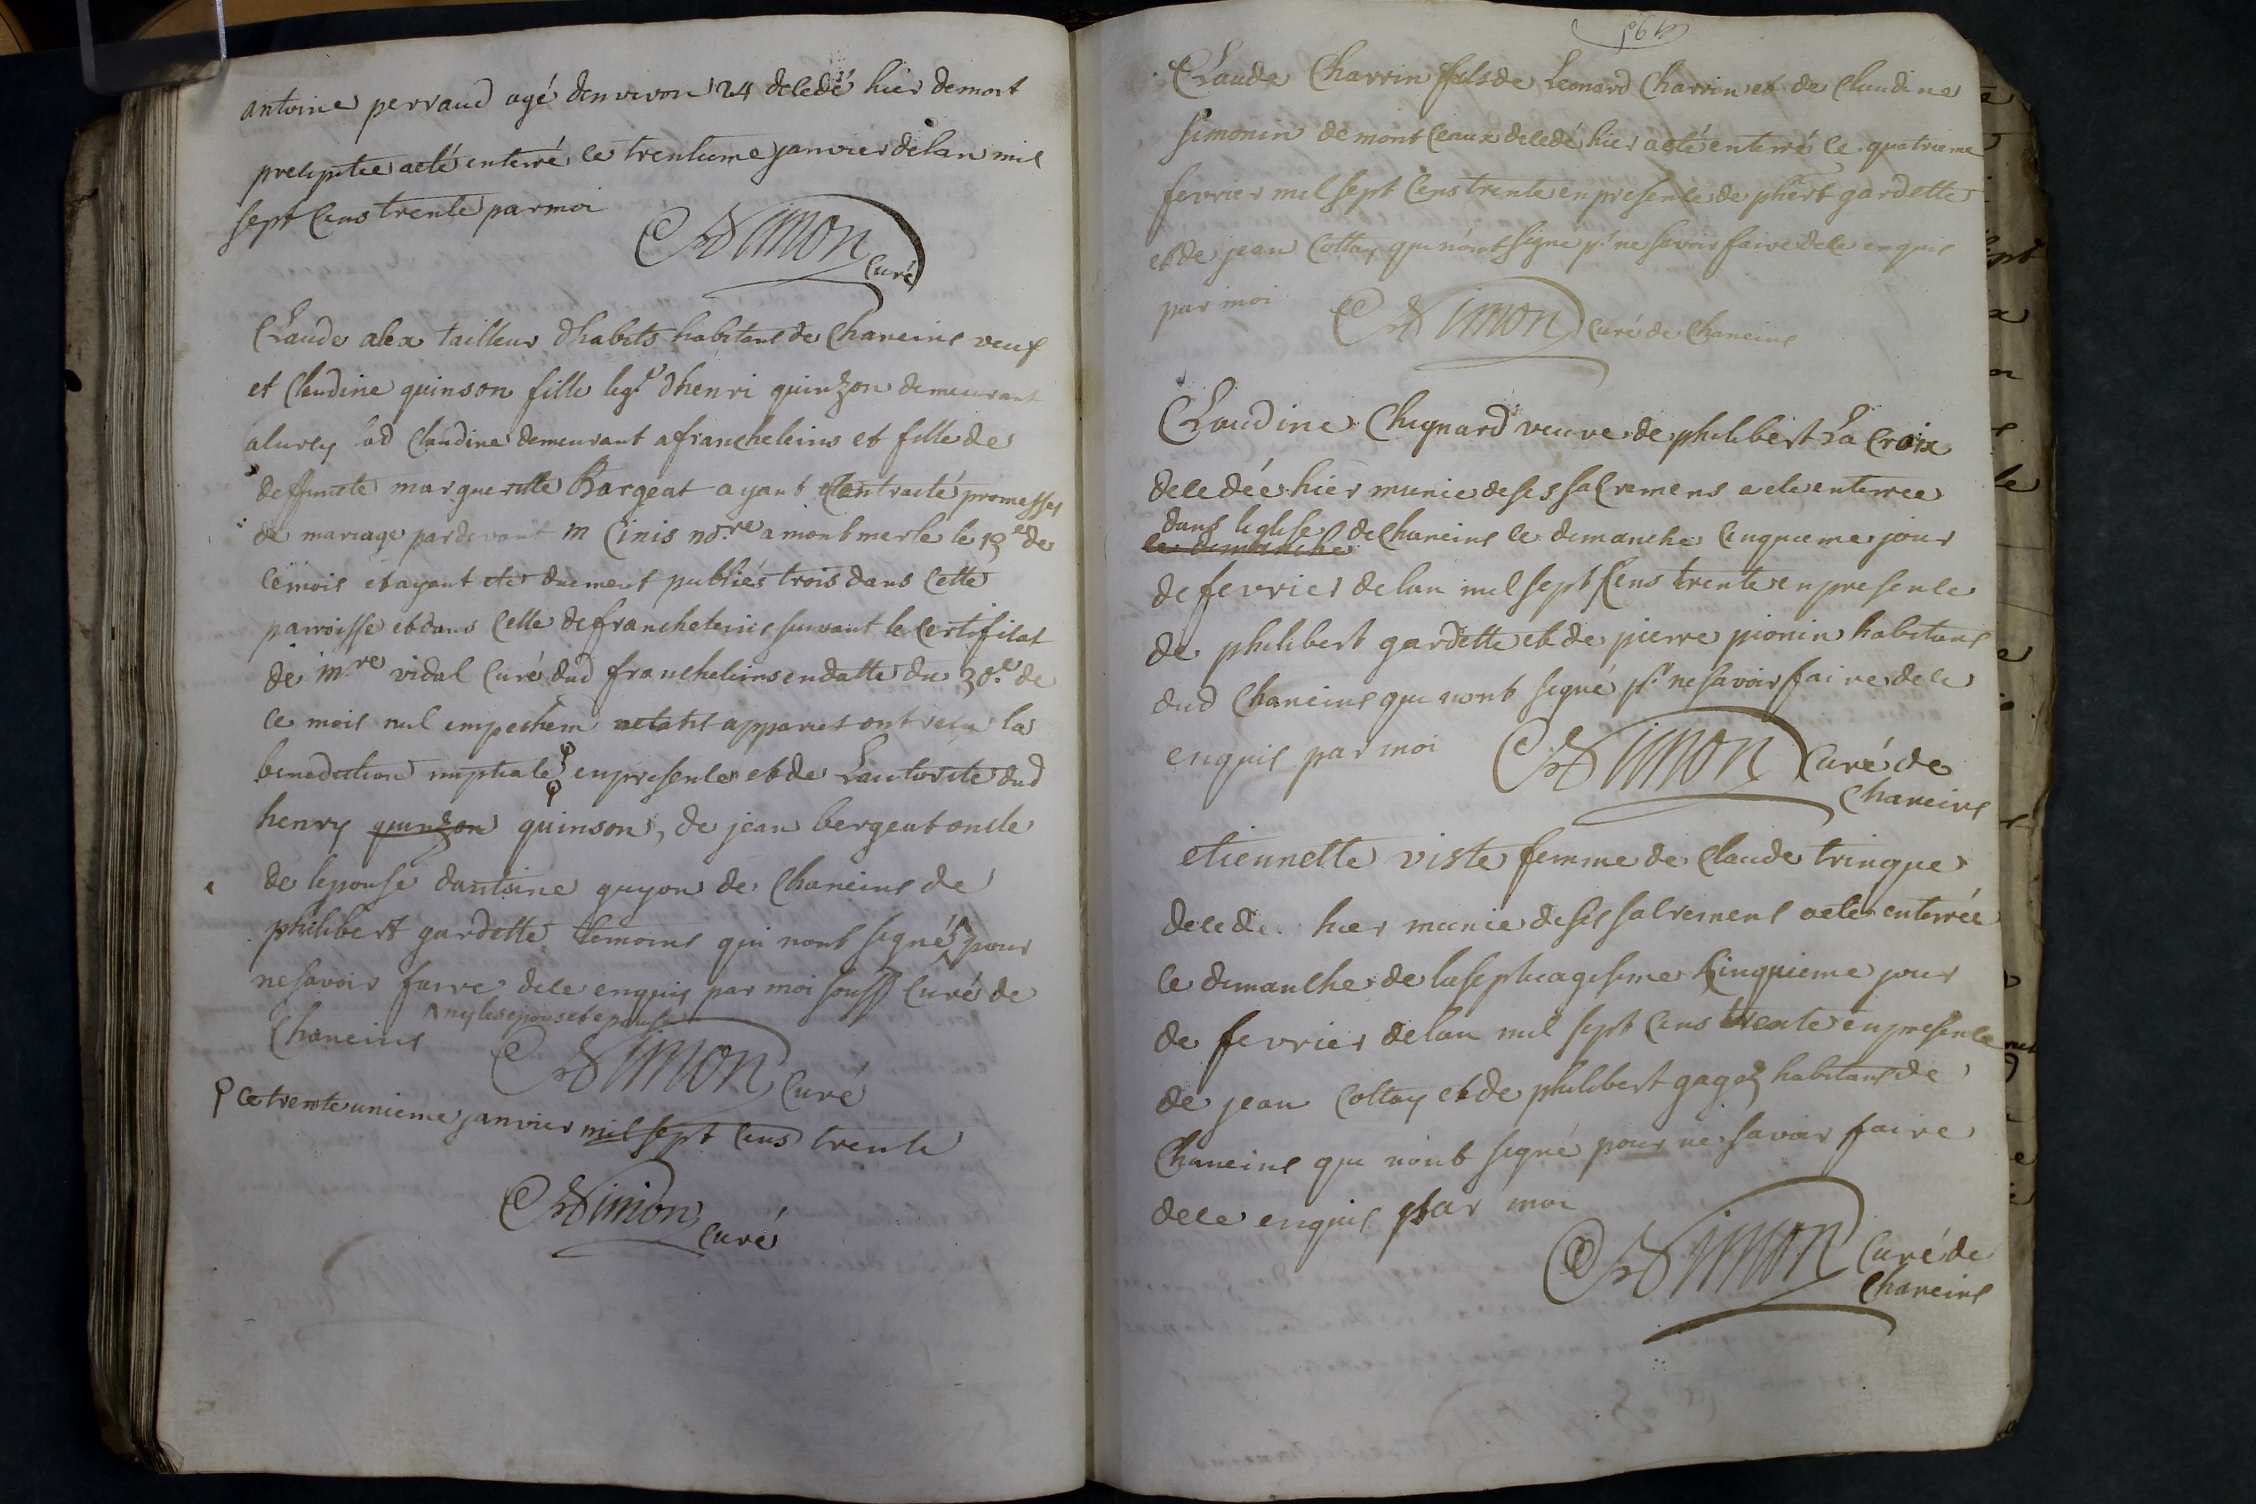 antoine perraud agé denviron 24 decedé hier de mort
precipitée a eté enterré le trentieme janvier de lan mil
sept cens trente par moi
Simon
Curé
Claude alex tailleur dhabits habitant de Chaneins veuf
et Claudine quinson fille leg.e dhenri quinzon demeurant
a lurcy lad Claudine demeurant a francheleins et fille de
deffuncte margueritte Bargeat ayant Contracté promesses
de mariage pardevant m Cinis no.re a montmerle le 19e de
ce mois et ayant eté duement publiés trois dans cette
parroisse et dans celle de francheleins suivant le certificat
de m.re vidal Curé dud francheleins en datte du 30.e de
ce mois nul empechem apparus ont recu la
benediction nuptiale en presence et de Lautorité dud
henry quinzon quinson, de jean bergeat oncle
de lepouse dantoine guyon de Chaneins de
philibert gardette temoins qui nont signé pour
ne savoir faire de ce enquis par moi souss Curé de
Chaneins ny les epoux et epouse
Simon Curé
ce trente unieme janvier mil sept cens trente
Simon
Curé
Claude Charrin fils de Leonard Charrin et de Claudine
simonin de montceaux decedé hier a eté enterré le quatrieme
fevrier mil sept cens trente en presence de phert gardette
et de jean Cottay qui n'ont signé p.r ne savoir faire de ce enquis
par moi Simon Curé de Chaneins
Claudine Chignard veuve de philibert La Croix
decedée hier munie de ses sacremens a ete enterree
dans leglise de Chaneins le dimanche cinquieme jour
le dimanche
de fevrier de lan mil sept cens trente en presence
de philibert gardette et de pierre pionin habitans
dud Chaneins qui nont signé p.r ne savoir faire de ce
enquis par moi Simon Curé de
Chaneins
etiennette viste femme de Claude tringue
decede hier munie de ses sacremens a ete enterrée
le dimanche de la septuagesime Cinquieme jour
de fevrier de lan mil sept cens trente en presence
de jean Cottay et de philibert habitans de
Chaneins qui n'ont signé pour ne savoir faire
de ce enquis par moi
Simon Curé de
Chaneins